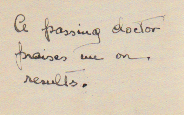 A passing doctor
praises me on.
results.